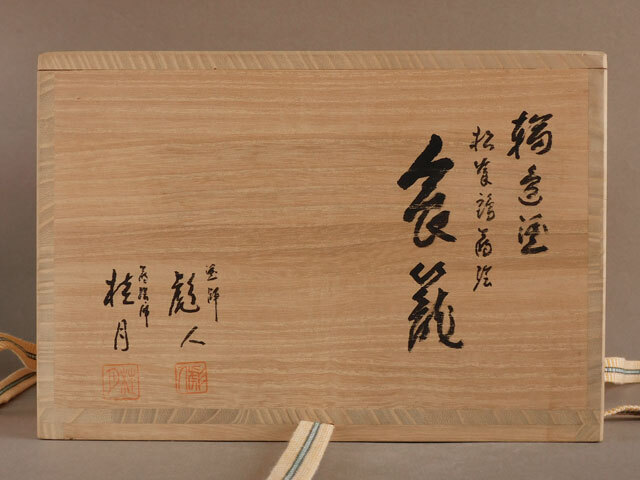 輪島塗
松竹諸蒔絵
食籠
塗師
彪人
蒔絵師
桂月